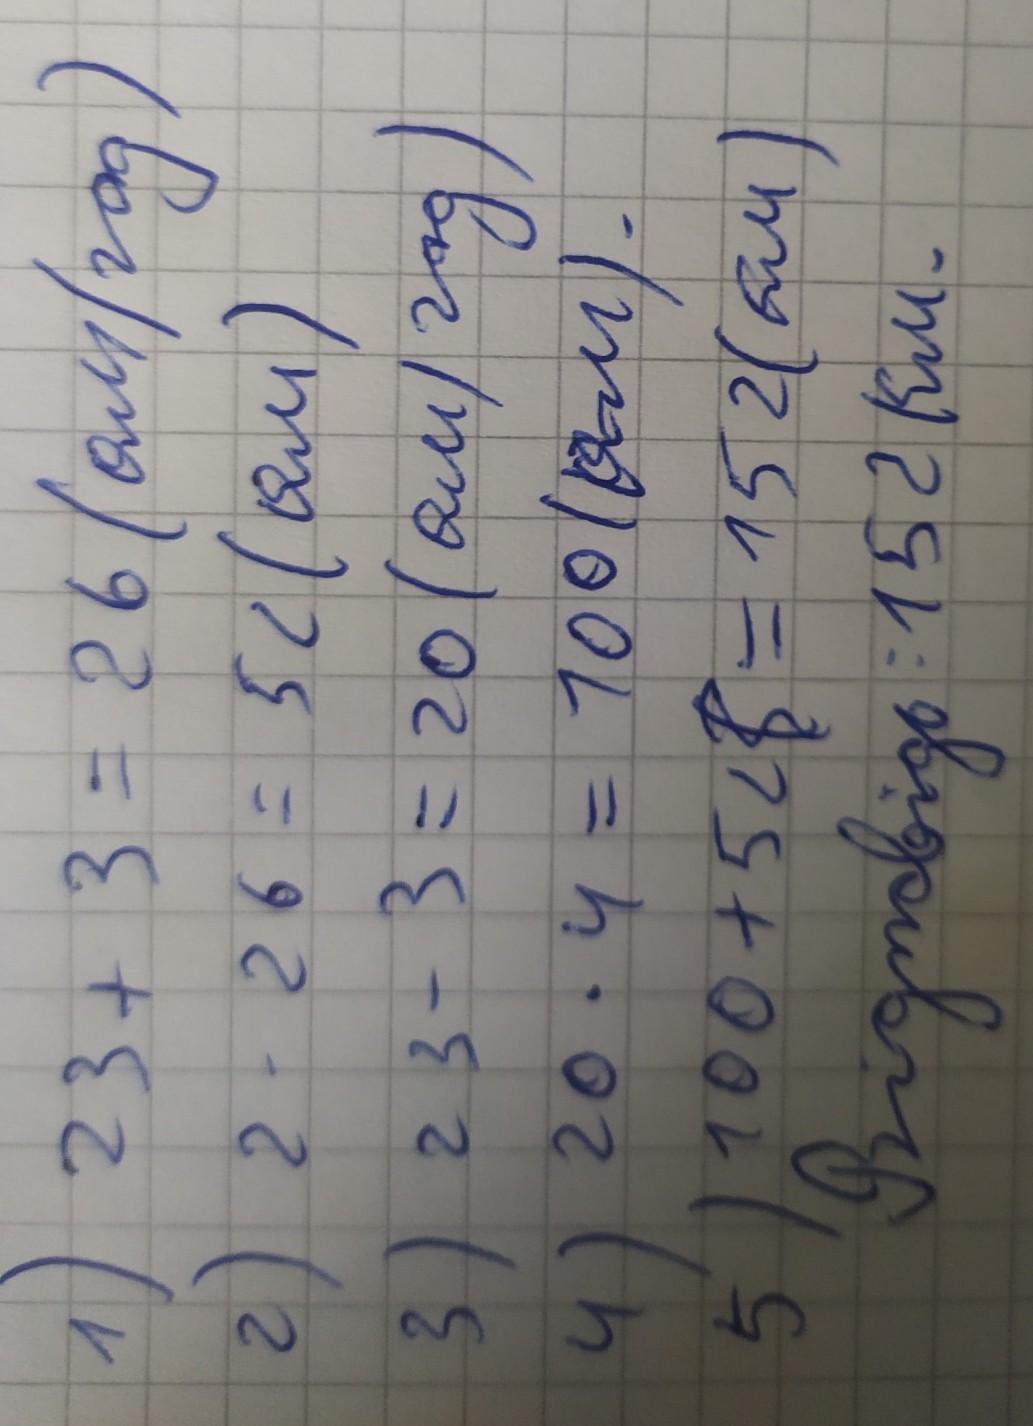 1) 23 + 3 = 26 (км/год)
2) 2 · 26 = 52 (км)
3) 23 - 3 = 20 (км/год)
4) 20 · 4 = 100 (км).
5) 100 + 52 = 152 (км)
Відповідь: 152 км.